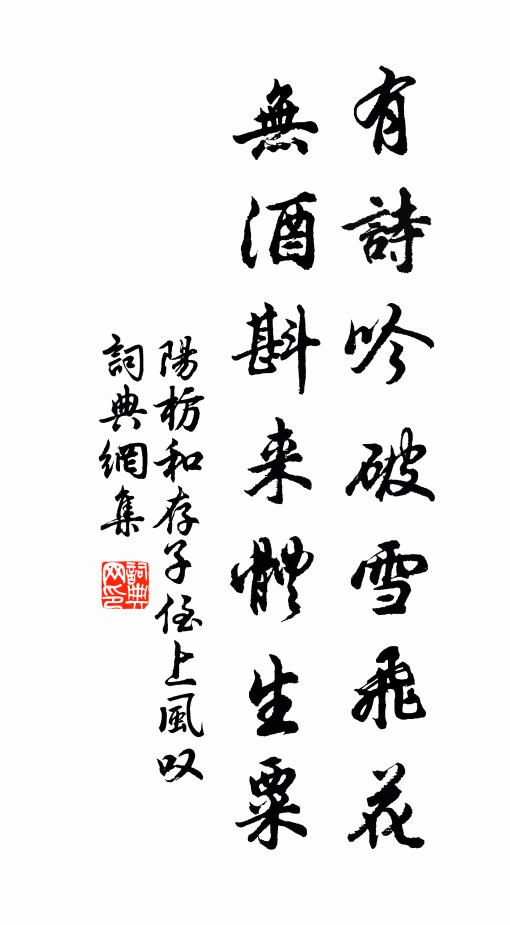 有詩吟破雪飛花
無酒斟来體生粟
陽枋和存子侄上風叹
詞典網集
詞典网印